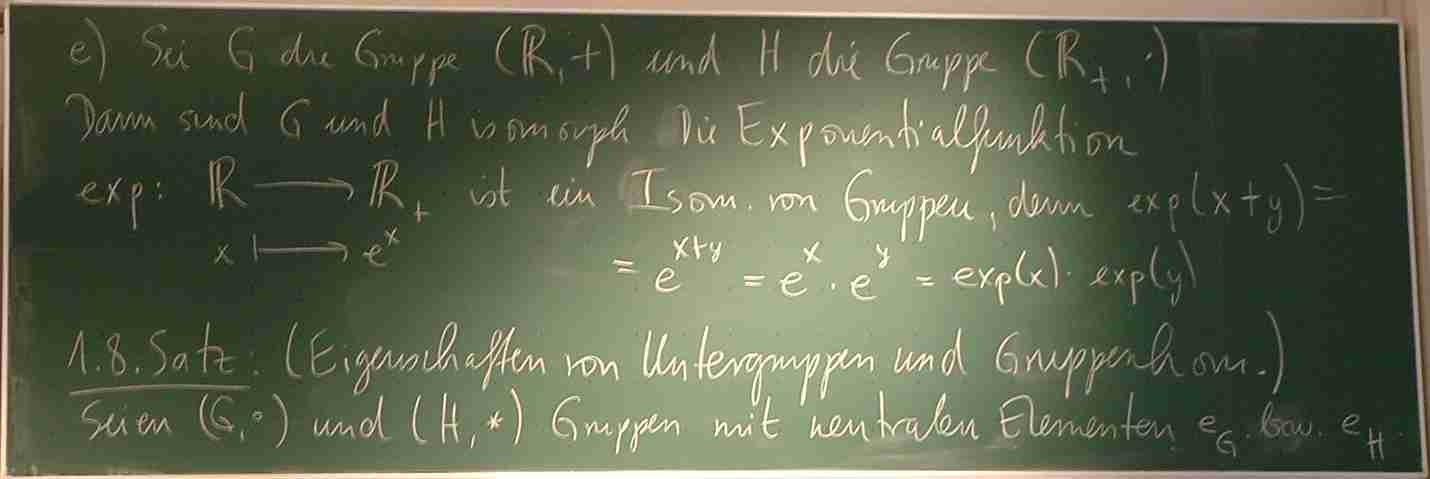 e) Sei G die Gruppe (ℝ,+) und H die Gruppe (ℝ₊,·)
Dann sind G und H isomorph Die Exponentialfunktion
exp: ℝ ⟶ ℝ₊ ist ein Isom. von Gruppen, denn exp(x+y)=
x ⟼ e^x = e^{x+y} = e^x · e^y = exp(x)· exp(y)
1.8. Satz: (Eigenschaften von Untergruppen und Gruppenhom.)
Seien (G,∘) und (H,*) Gruppen mit neutralen Elementen e_G bzw. e_H.